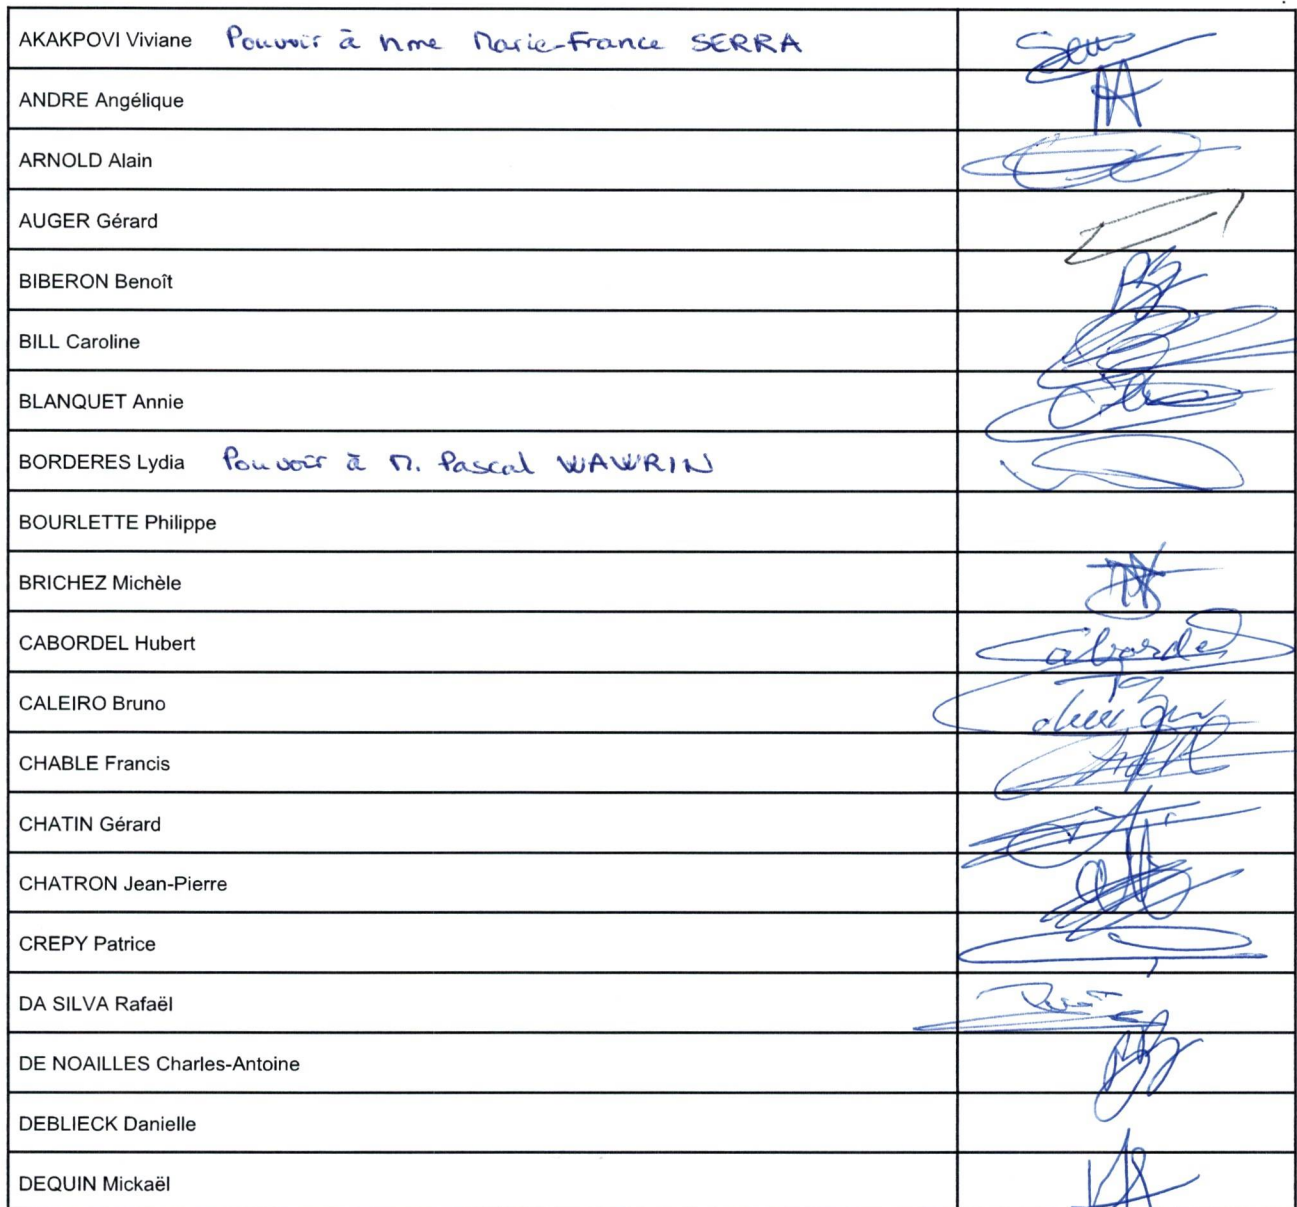 AKAKPOVI Viviane Pouvoir à Mme Marie-France SERRA
ANDRE Angélique
ARNOLD Alain
AUGER Gérard
BIBERON Benoît
BILL Caroline
BLANQUET Annie
BORDERES Lydia Pouvoir à M. Pascal WAWRIN
BOURLETTE Philippe
BRICHEZ Michèle
CABORDEL Hubert
CALEIRO Bruno
CHABLE Francis
CHATIN Gérard
CHATRON Jean-Pierre
CREPY Patrice
DA SILVA Rafaël
DE NOAILLES Charles-Antoine
DEBLIECK Danielle
DEQUIN Mickaël